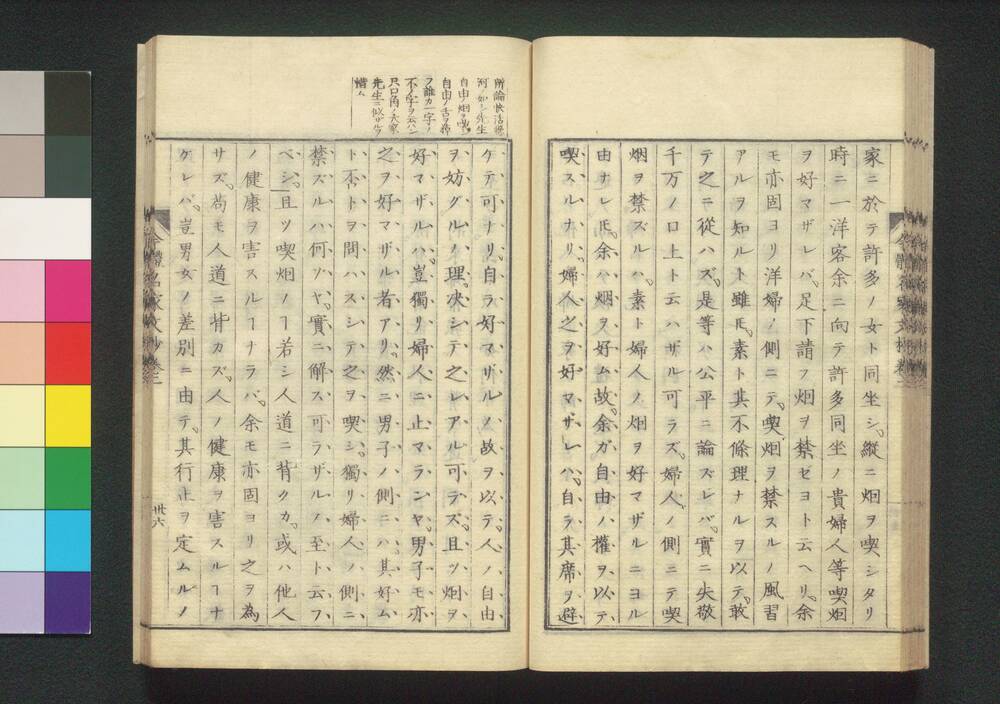 家ニ於テ許多ノ女ト同坐シ。縱ニ烟ヲ喫シタリ
時ニ一洋客余ニ向テ許多同坐ノ貴婦人等喫烟
ヲ好マザレバ。足下請フ烟ヲ禁ゼヨト云ヘリ。余
モ亦固ヨリ洋婦ノ側ニテ。喫烟ヲ禁スルノ風習
アルヲ知ルト雖𪜈。素ト其不條理ナルヲ以テ。敢
テ之ニ從ハズ。是等ハ公平ニ論ズレバ。實ニ失敬
千万ノ口上ト云ハザル可ラズ。婦人ノ側ニテ喫
烟ヲ禁ズルハ。素ト婦人ノ烟ヲ好マザルニヨル
由ナレ𪜈。余ハ烟ヲ好ム故。余ガ自由ノ權ヲ以テ
喫スルナリ。婦人之ヲ好マザレハ。自ラ其席ヲ避
所論快活
先生
自由ノ烟ヲ喫
自由ノ舌ヲ
フ誰カ一字ノ
不ノ字ヲ云ハン
只口角ノ大家
先生ニ似ザルヲ
惜ム
ケテ可ナリ。自ラ好マザルノ故ヲ以テ。人ノ自由
ヲ妨グルノ理。决シテ之レアル可ラズ。且ツ烟ヲ
好マザルハ。豈獨リ婦人ニ止マランヤ。男子モ亦
之ヲ好マザル者アリ。然ニ男子ノ側ニハ其好ム
ト否トヲ問ハスシテ之ヲ喫シ。獨リ婦人ノ側ニ
禁ズルハ何ソヤ。實ニ解ス可ラザルノ至ト云フ
ベシ。且ツ喫烟ノヿ若シ人道ニ背クカ。或ハ他人
ノ健康ヲ害スルヿナラバ。余モ亦固ヨリ之ヲ為
サズ。苟モ人道ニ背カズ。人ノ健康ヲ害スルヿナ
ケレバ。豈男女ノ差別ニ由テ。其行止ヲ定ムルノ
今體名家文抄卷三
卅六